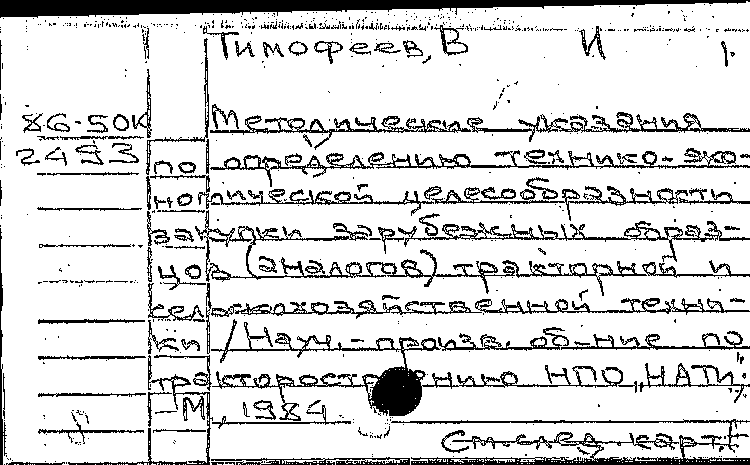 Тимофеев, В И
Методические указания
86-50К
2493
по определению технико-эко-
номической целесообразности
закупки зарубежных образ-
цов (аналогов) тракторной и
сельскохозяйственной техни-
ки / Науч.-произв. об-ние по
тракторостроению НПО „НАТИ".
-М, 1984
См. след. карт.